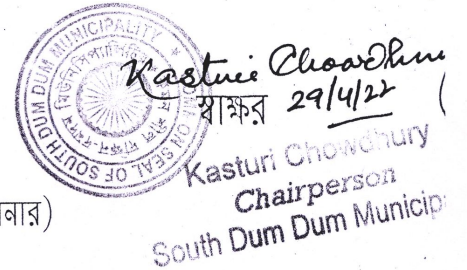 SOUTH DUM DUM MUNICIPALITY
COMMON SEAL OF SOUTH DUM DUM
Kasturi Chowdhu
স্বাক্ষর 29/4/22 (
Kasturi Chowdhury
Chairperson
নার)
South Dum Dum Municip